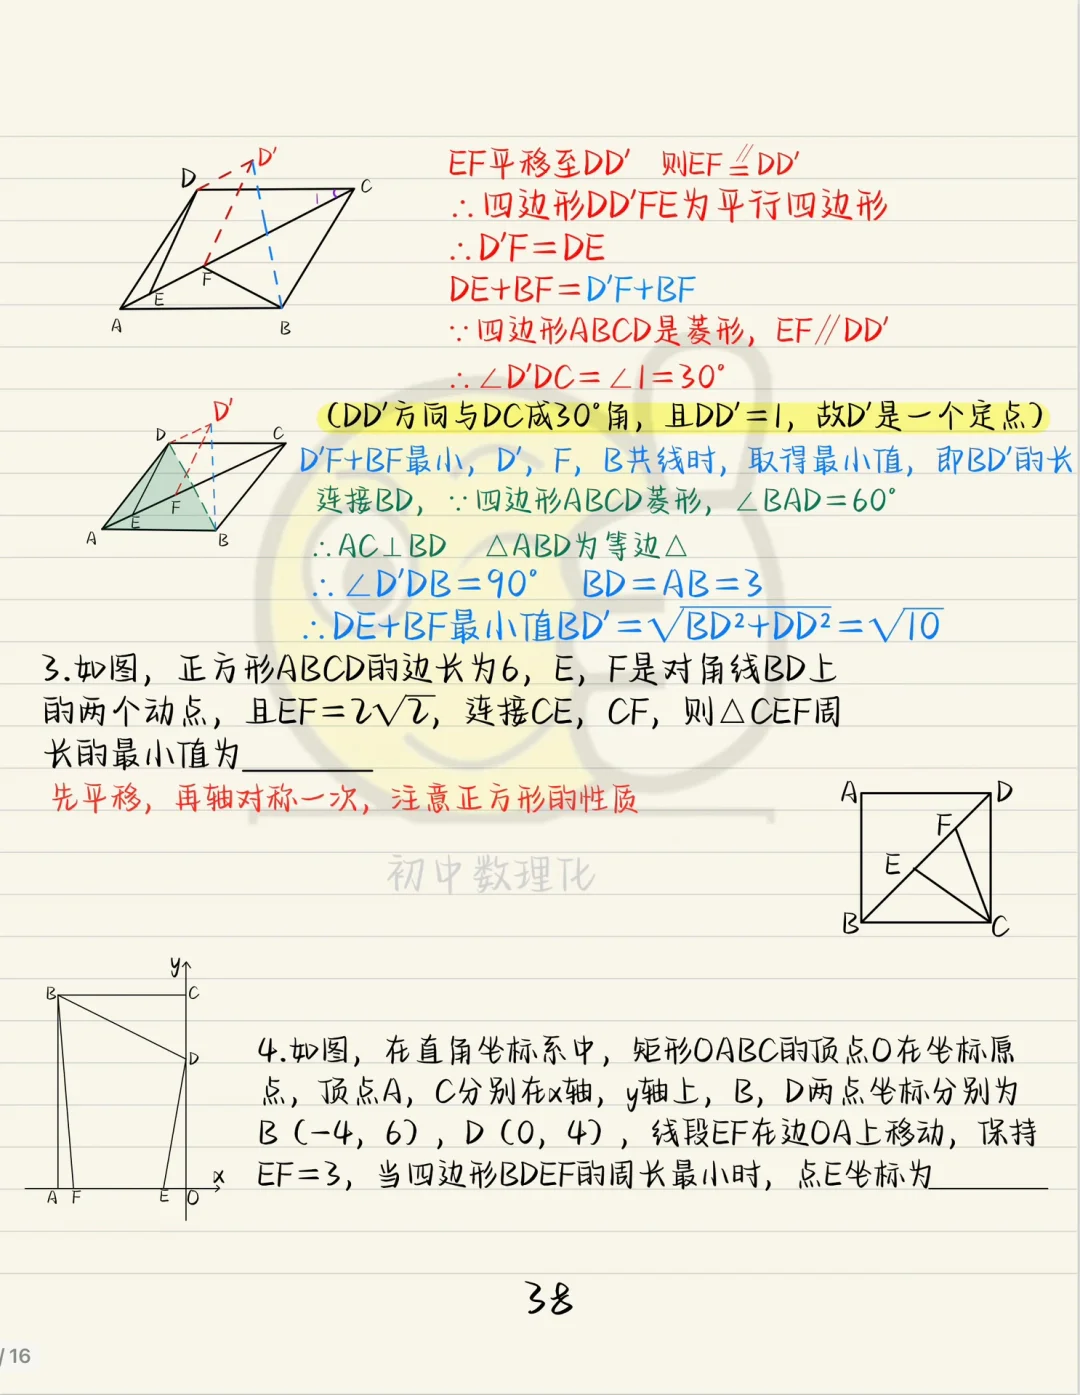 D'
D
C
F
E
A
B
1
EF平移至DD' 则EF∥=DD'
∴四边形DD'FE为平行四边形
∴D'F=DE
DE+BF=D'F+BF
∵四边形ABCD是菱形，EF∥DD'
∴∠D'DC=∠1=30°
D'
D
C
F
E
A
B
（DD'方向与DC成30°角，且DD'=1，故D'是一个定点）
D'F+BF最小，D'，F，B共线时，取得最小值，即BD'的长
连接BD，∵四边形ABCD菱形，∠BAD=60°
∴AC⊥BD △ABD为等边△
∴∠D'DB=90° BD=AB=3
∴DE+BF最小值BD'=√BD²+DD²=√10
3.如图，正方形ABCD的边长为6，E，F是对角线BD上
的两个动点，且EF=2√2，连接CE，CF，则△CEF周
长的最小值为______
先平移，再轴对称一次，注意正方形的性质
A
D
F
E
B
C
初中数理化
y
B
C
D
x
A
F
E
O
4.如图，在直角坐标系中，矩形OABC的顶点O在坐标原
点，顶点A，C分别在x轴，y轴上，B，D两点坐标分别为
B（-4，6），D（0，4），线段EF在边OA上移动，保持
EF=3，当四边形BDEF的周长最小时，点E坐标为______
38
/ 16